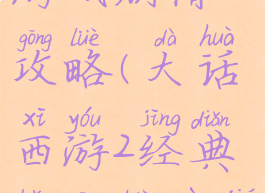 gōng lüè dà huà
攻略(大话
xī yóu jīng diǎn
西游2经典